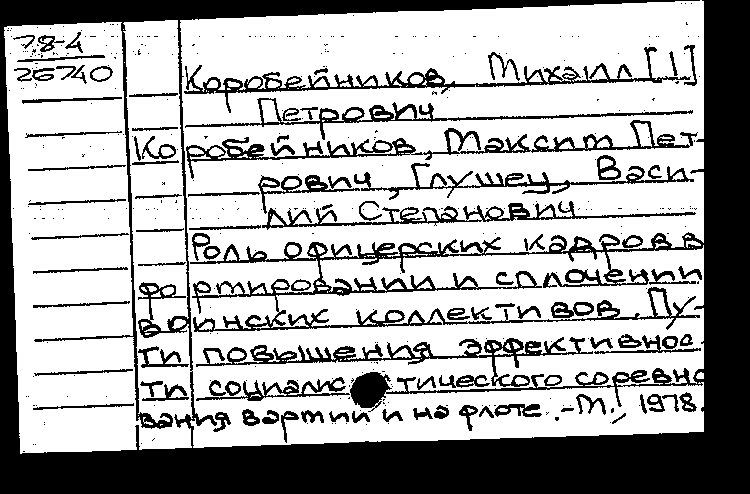 78-4
26740
Коробейников, Михаил [1]
Петрович
Коробейников, Максим Пет-
рович, Глушец, Васи-
лий Степанович
Роль офицерских кадров в
формировании и сплочении
воинских коллективов. Пу-
ти повышения эффективнос-
ти социалистического соревно
вания в армии и на флоте. -М., 1978.